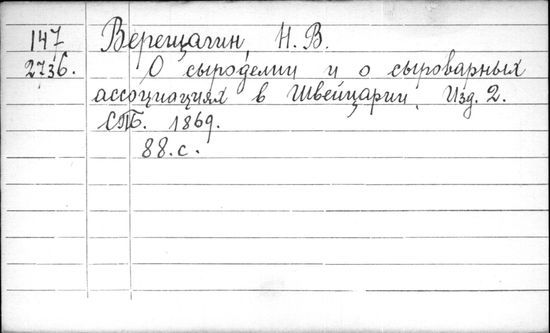 147 Верещагин, Н. В.
2736. О сыроделии и о сыроварных
ассоциациях в Швейцарии. Изд. 2.
СПБ. 1869.
88. с.